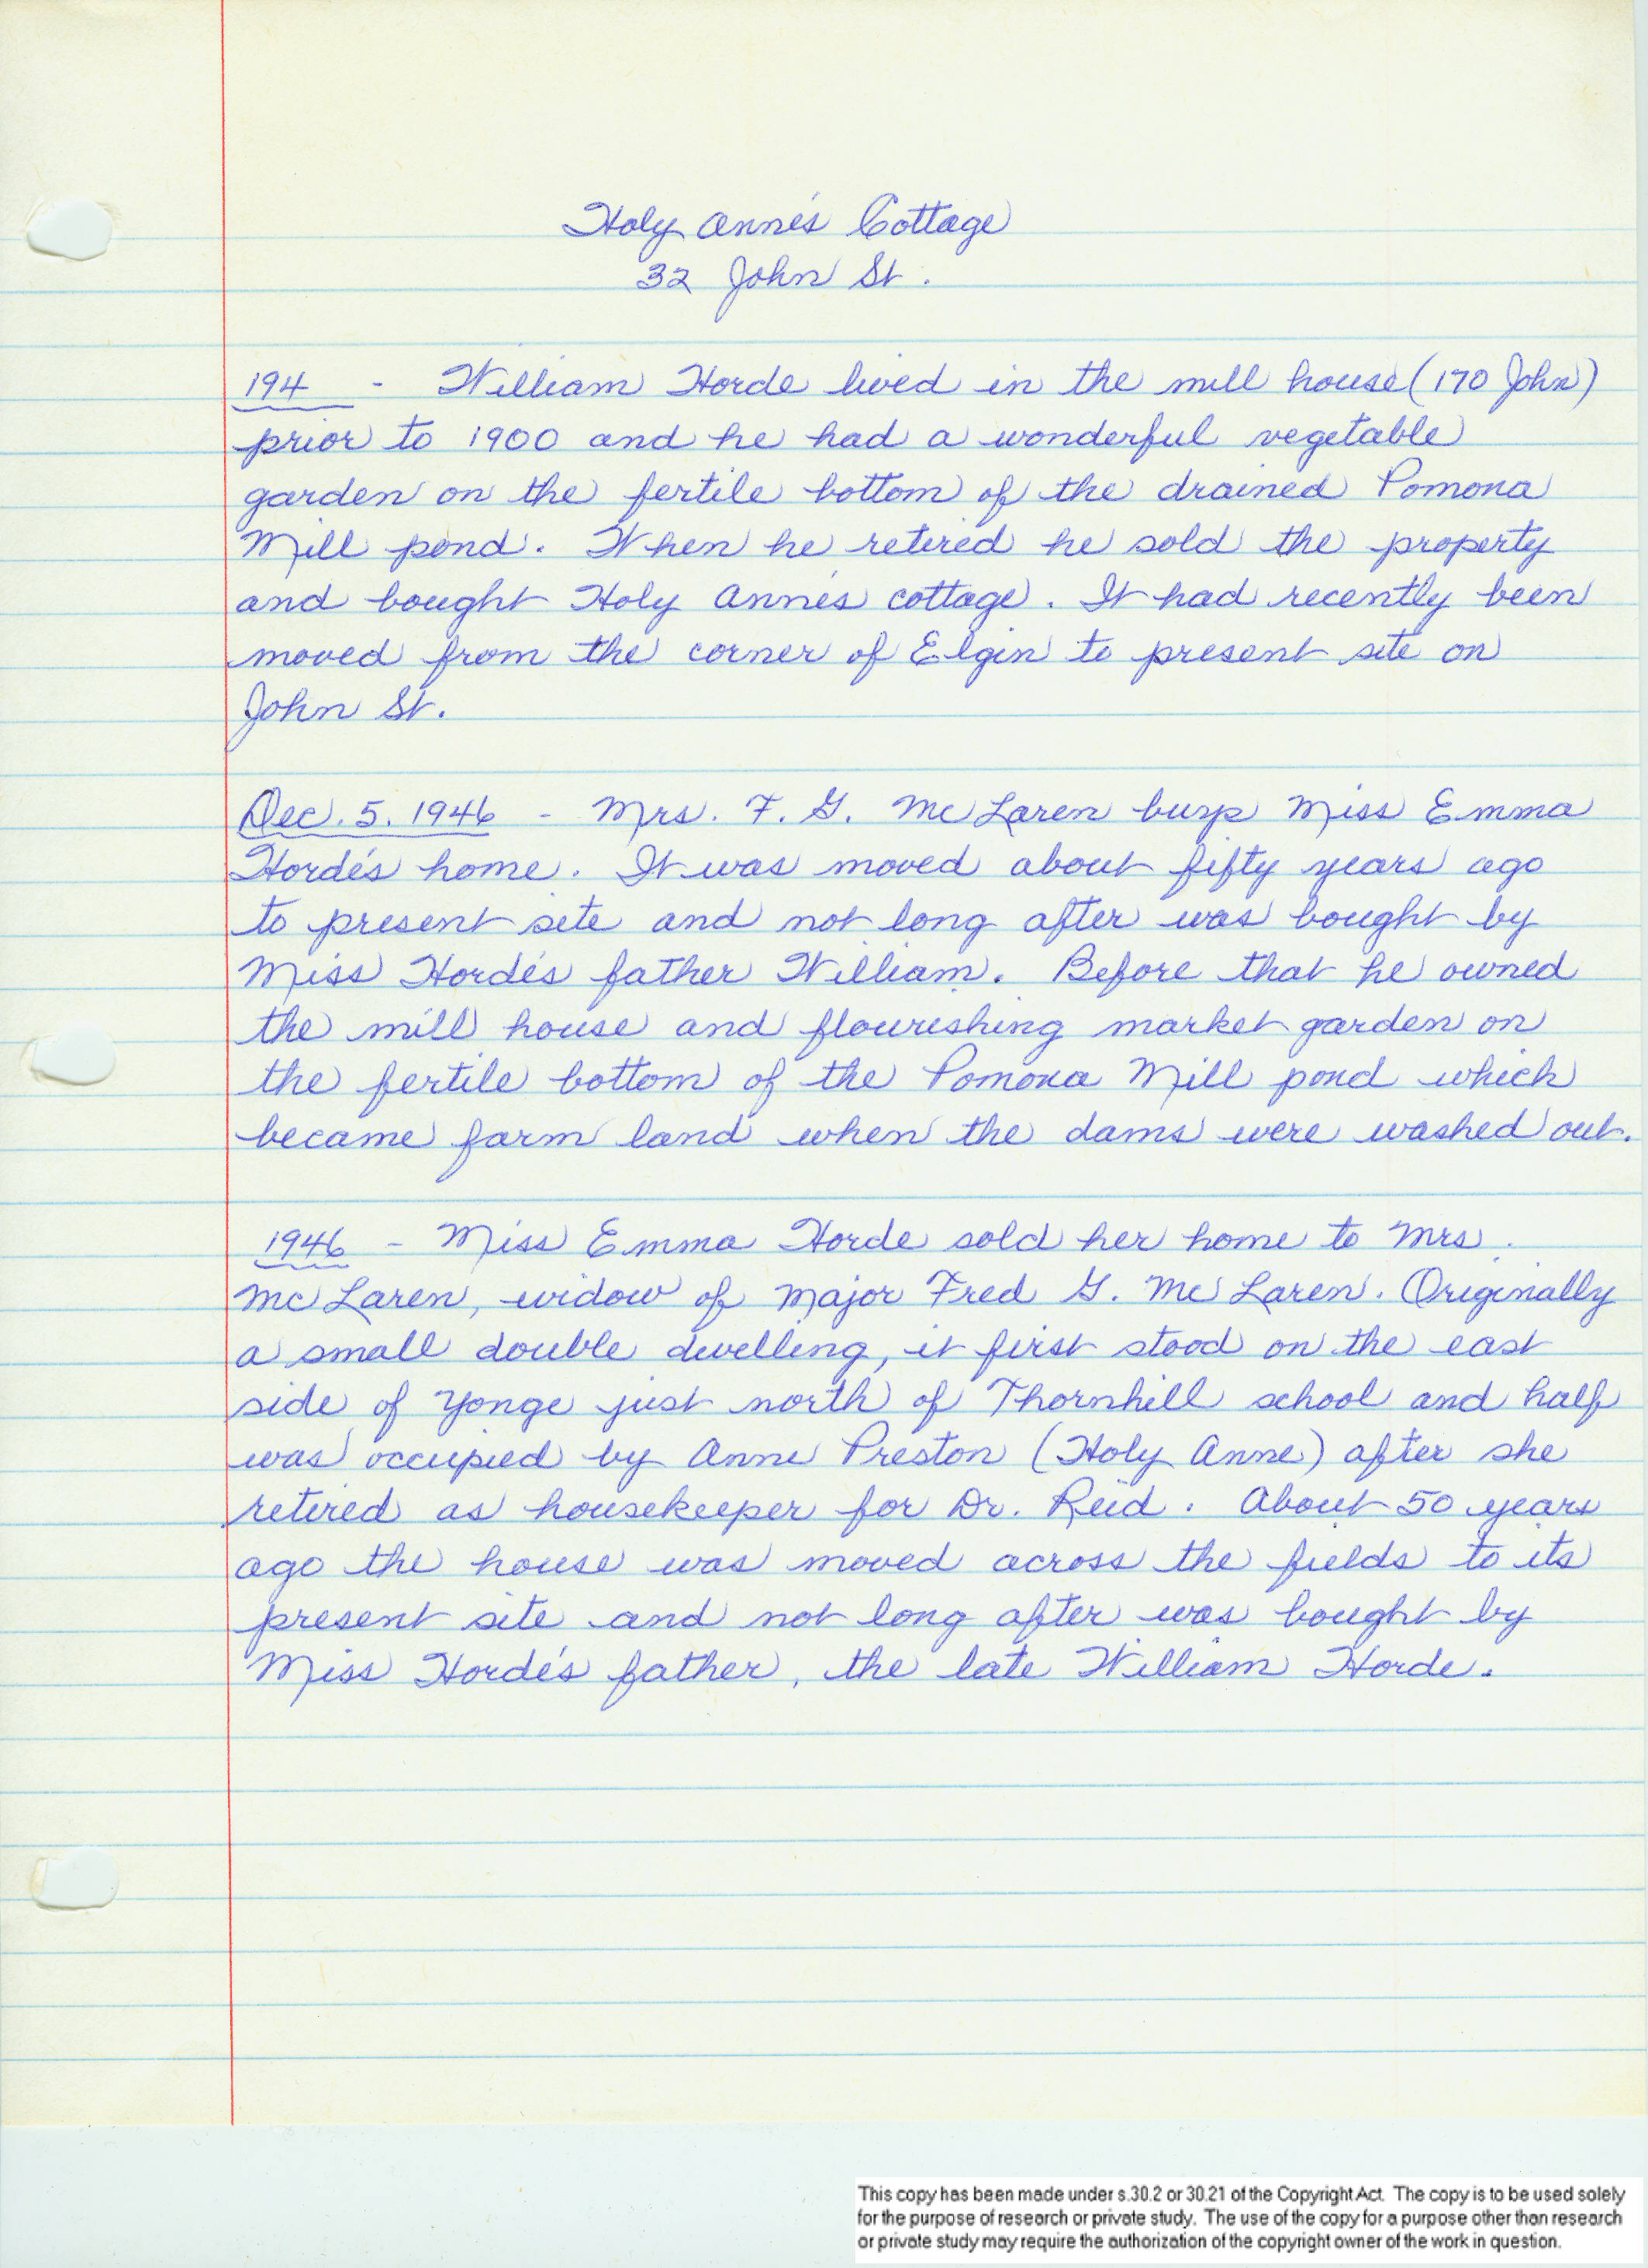 Holy Anne's Cottage
32 John St.
194 - William Horde lived in the mill house (170 John)
prior to 1900 and he had a wonderful vegetable
garden on the fertile bottom of the drained Pomona
Mill pond. When he retired he sold the property
and bought Holy Anne's cottage. It had recently been
moved from the corner of Elgin to present site on
John St.
Dec. 5. 1946 - Mrs. F. G. McLaren buys Miss Emma
Horde's home. It was moved about fifty years ago
to present site and not long after was bought by
Miss Horde's father William. Before that he owned
the mill house and flourishing market garden on
the fertile bottom of the Pomona Mill pond which
became farm land when the dams were washed out.
1946 - Miss Emma Horde sold her home to Mrs.
McLaren, widow of Major Fred G. McLaren. Originally
a small double dwelling, it first stood on the east
side of Yonge just north of Thornhill school and half
was occupied by Anne Preston (Holy Anne) after she
retired as housekeeper for Dr. Reid. About 50 years
ago the house was moved across the fields to its
present site and not long after was bought by
Miss Horde's father, the late William Horde.
This copy has been made under s.30.2 or 30.21 of the Copyright Act. The copy is to be used solely
for the purpose of research or private study. The use of the copy for a purpose other than research
or private study may require the authorization of the copyright owner of the work in question.